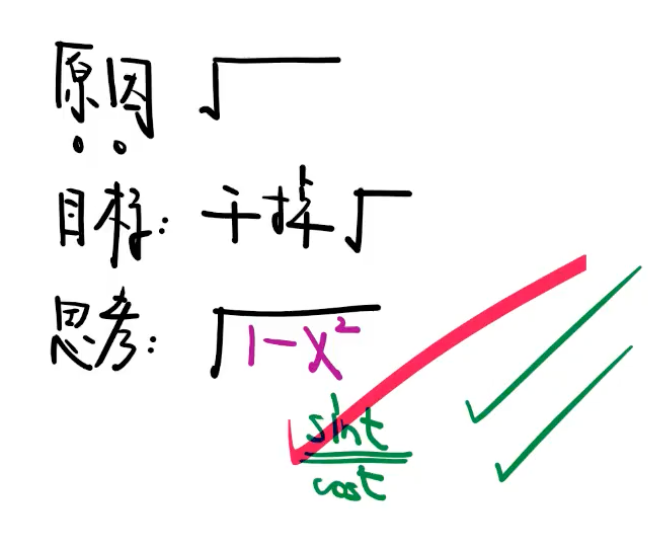 原因 √
目标: 干掉√
思考: √1-x²
sint
cost